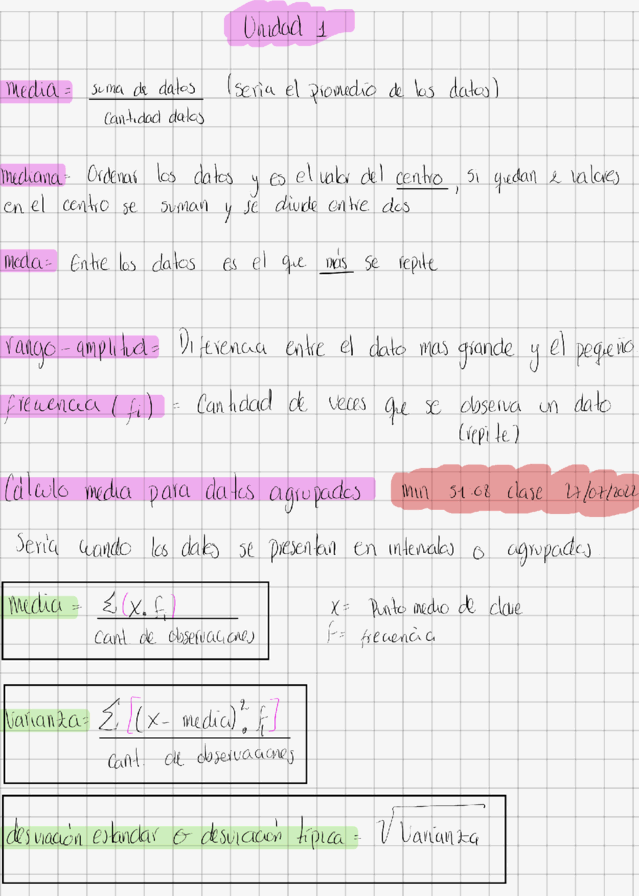 Unidad 1
media = suma de datos (seria el promedio de los datos)
cantidad datos
mediana = Ordenar los datos y es el valor del centro, si quedan 2 valores
en el centro se suman y se divide entre dos
moda = Entre los datos es el que más se repite
rango - amplitud = Diferencia entre el dato mas grande y el pequeño
frecuencia (fi) = Cantidad de veces que se observa un dato
(repite)
Cálculo media para datos agrupados min 51:08 clase 27/07/2022
Seria cuando los datos se presentan en intervalos o agrupados
media = Σ(x . fi)
cant de observaciones
x = Punto medio de clase
f = frecuencia
Varianza = Σ[(x - media)² . fi]
cant. de observaciones
desviación estandar o desviación típica = √Varianza